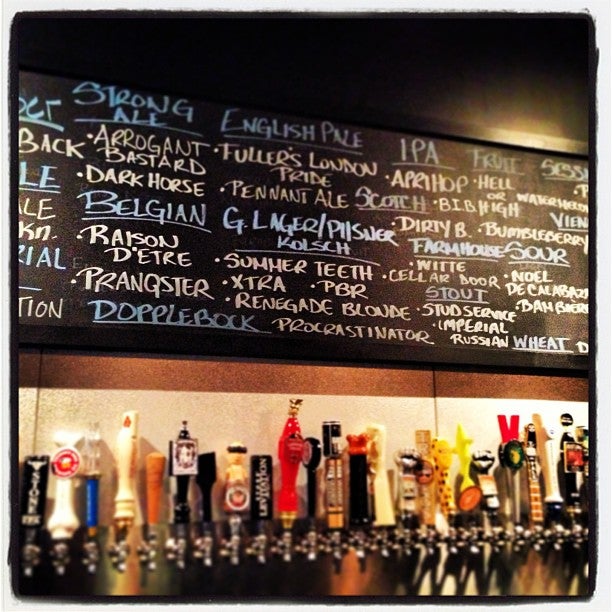 STRONG ALE
• ARROGANT BASTARD
• DARK HORSE
BELGIAN
• RAISON D'ETRE
• PRANQSTER
DOPPLEBOCK
PROCRASTINATOR
ENGLISH PALE
• FULLER'S LONDON PRIDE
• PENNANT ALE
SCOTCH
• DIRTY B.
G. LAGER/PILSNER
KOLSCH
• SUMMER TEETH
• XTRA
• PBR
• RENEGADE BLONDE
IPA
• APRIHOP
• B.I.B HIGH
FARMHOUSE
• WITTE
• CELLAR DOOR
STOUT
• STUD SERVICE
• IMPERIAL RUSSIAN
FRUIT
• HELL OR WATERMELON
• BUMBLEBERRY
SOUR
• NOEL DE CALABAZA
• BAM BIERE
WHEAT
BACK
LE
ALE
KN.
IAL
TION
VIEN
STONE
LEVIATHAN